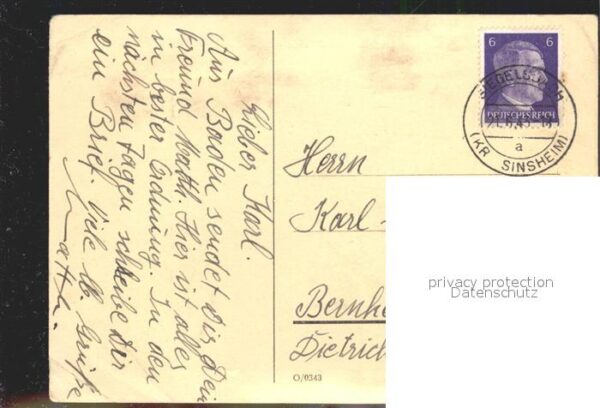 Lieber Karl.
Aus Baden sendet Dir Dein
Freund Matth. Hier ist alles
in bester Ordnung. In den
nächsten Tagen schreibe Dir
ein Brief. Viele lb. Grüße
Matth.
6 6
DEUTSCHES REICH
SIEGELSBACH
a
(KR SINSHEIM)
Herrn
Karl
privacy protection
Datenschutz
Bernhe
Dietrich
O/0343